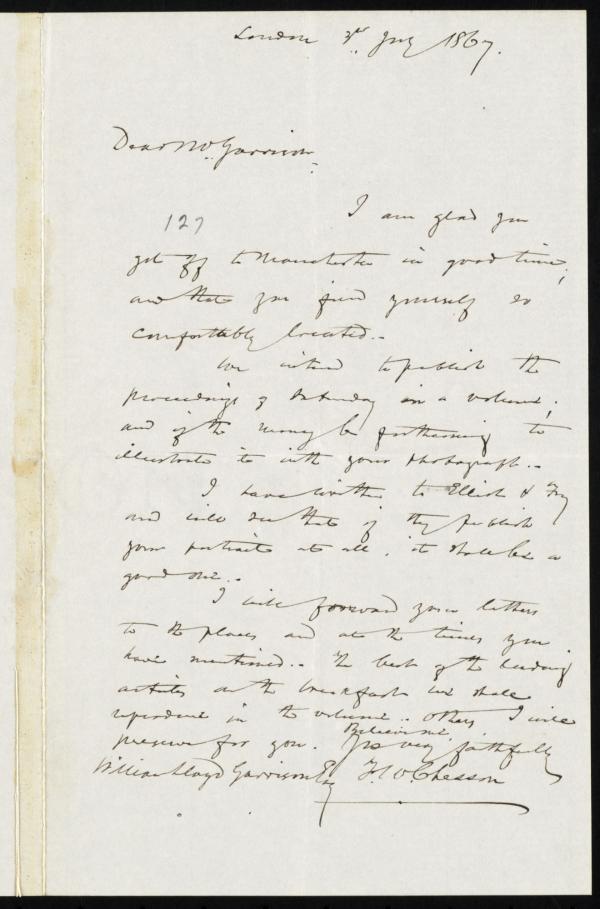 London 3rd July 1867.
Dear Mr. Garrison
127
I am glad you
got off to Manchester in good time;
and that you find yourself so
comfortably located.
We intend to publish the
proceedings of Saturday in a volume;
and if the money be forthcoming to
illustrate it with your photograph.
I have written to Elliott & Fry
and will see that if they publish
your portrait at all, it shall be a
good one.
I will forward your letters
to the places and at the times you
have mentioned. The best of the leading
articles on the breakfast we shall
reproduce in the volume. Others I will
preserve for you.
Believe me
Yrs very faithfully
F. W. Chesson
William Lloyd Garrison Esq